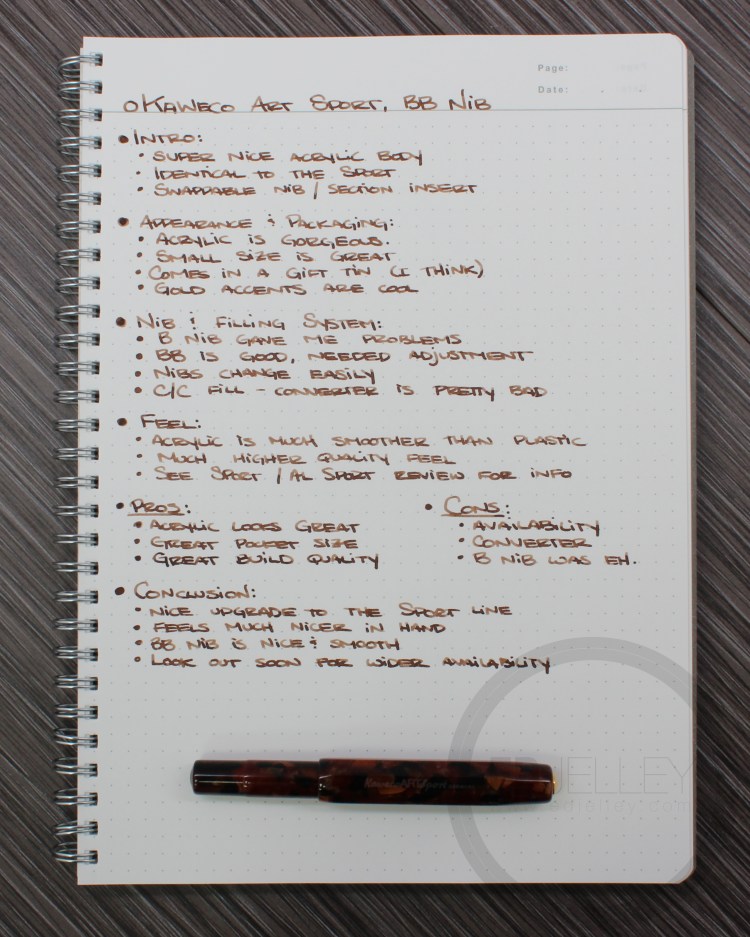 Page:
Date:
Kaweco Art Sport, BB Nib
• Intro:
• Super nice acrylic body
• Identical to the Sport
• Swappable nib / section insert
• Appearance & Packaging:
• Acrylic is gorgeous.
• Small size is great
• Comes in a gift tin (I think)
• Gold accents are cool
• Nib & Filling System:
• B nib gave me problems
• BB is good, needed adjustment
• Nibs change easily
• C/C fill - converter is pretty bad
• Feel:
• Acrylic is much smoother than plastic
• Much higher quality feel
• See Sport / AL Sport review for info
• Pros:
• Acrylic looks great
• Great pocket size
• Great build quality
• Cons:
• Availability
• Converter
• B nib was eh.
• Conclusion:
• Nice upgrade to the Sport line
• Feels much nicer in hand
• BB nib is nice & smooth
• Look out soon for wider availability